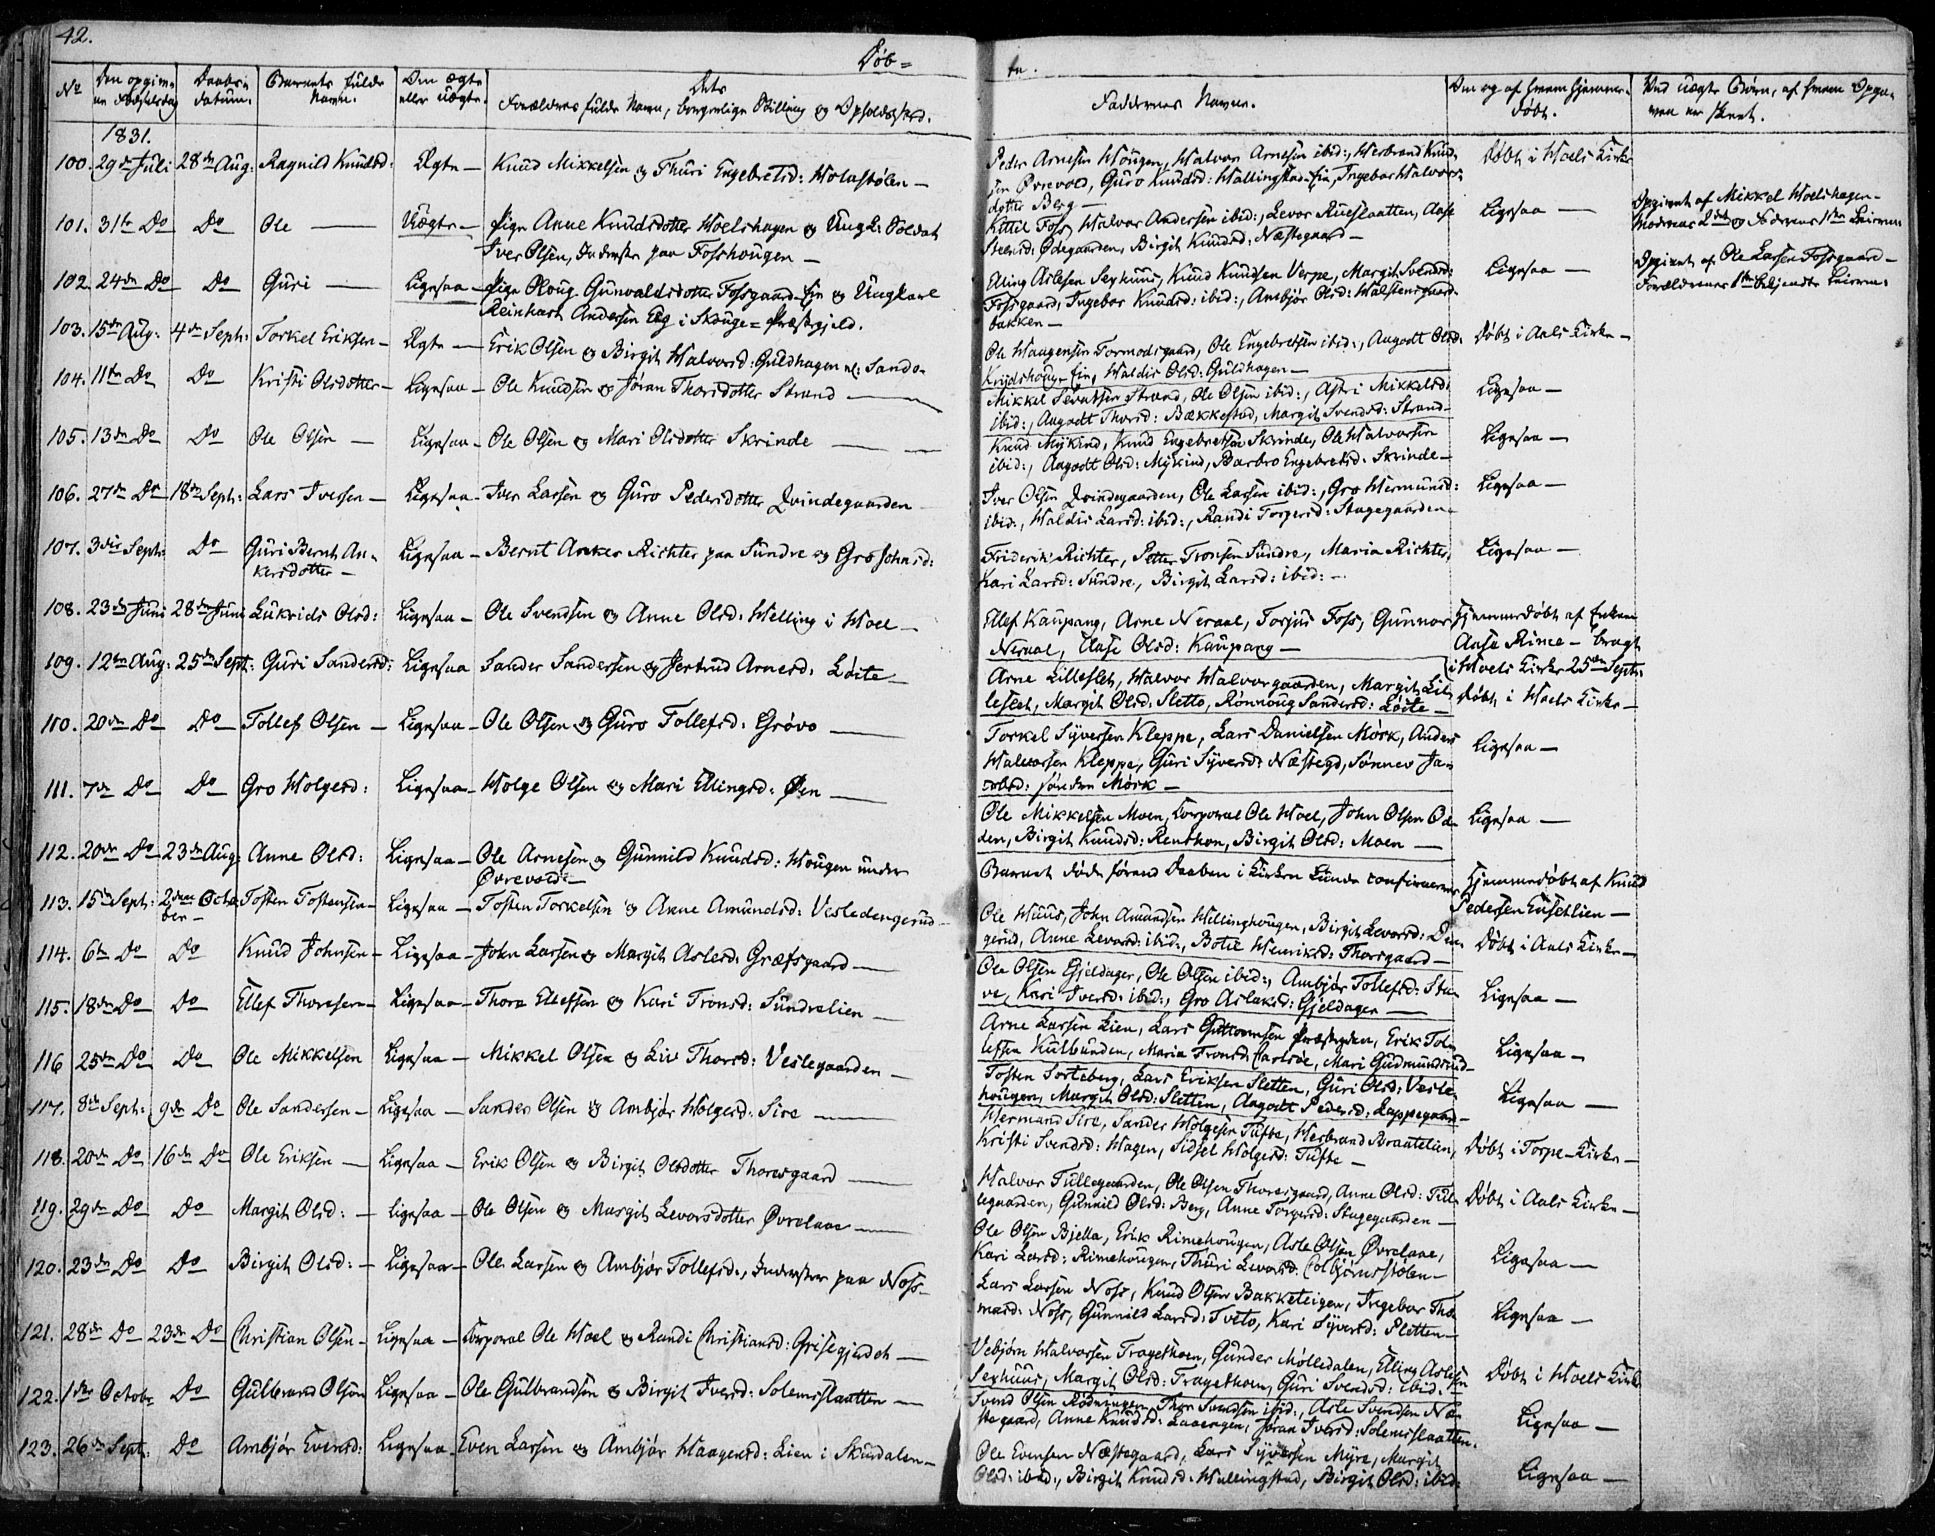 42.
Døb=
te.
No
Den opgivne Fødselsdag
Daabs-datum.
Barnets fulde Navn.
Om ægte eller uægte.
Dets Forældres fulde Navn, borgerlige Stilling og Opholdssted.
Faddernes Navne.
Om og af hvem hjemmedøbt.
Ved uægte Børn, af hvem Opgaven er skeet.
1831.
100. 29de Juli 28de Aug: Ragnild Knudsd: Ægte — Knud Mikkelsen og Thuri Engebretsd: Holastølen —
Peder Arnesen Hougen, Halvor Arnesen ibid:, Herbrand Knud-
sen Øvrevold, Guro Knudsd: Hallingstad-Eie, Ingebor Halvors-
dotter Berg —
Døbt i Hoels Kirke
101. 31te Do Do Ole — Uægte — Pige Anne Knudsdotter Hoelshagen og Ungk: Soldat
Iver Olsen, Inderste paa Fosshougen —
Kittil Foss, Halvor Andersen ibid:, Levor Rueslaatten, Aase
Svensd: Ødegaarden, Birgit Knudsd: Næstegaard —
Ligesaa —
Opgivet af Mikkel Hoelshagen —
Moderens 2det og Faderens 1ste Leierm:
102. 24de Do Do Guri — Ligesaa — Pige Oloug Gunvaldsdotter Fossgaard-Eie og Ungkarl
Reinhart Andersen Eeg i Skouge= Præstegjeld.
Elling Aslesen Sexhuus, Knud Knudsen Verpe, Margit Svendsd:
Fossgaard, Ingebor Knudsd: ibid:, Ambjør Olsd: Halstensgaard-
bakken —
Ligesaa —
Opgivet af Ole Larsen Fossgaard —
Forældrenes 1ste Leierm:
103. 15de Aug: 4de Sept: Torkel Eriksen — Ægte — Erik Olsen og Birgit Halvorsd: Guldhagen
Ole Haagensen Tormodsgaard, Ole Engebretsen ibid:, Aagodt Olsd:
Eie, Haldis Olsd: Guldhagen —
Døbt i Aals Kirke —
104. 11te Do Do Kristi Olsdotter — Ligesaa — Ole Knudsen og Jøran Thorsdotter Strand —
Mikkel Strand, Ole Olsen ibid:, Astri Mikkelsd:
ibid:, Aagodt Thorsd: Bækkestad, Margit Svendsd: Strand —
Ligesaa —
105. 13de Do Do Ole Olsen — Ligesaa — Ole Olsen og Mari Olsdotter Skrinde —
Knud Mykind, Knud Engebretsen Skrinde, Ole Halvorsen
ibid:, Aagodt Olsd: Mykind, Barbro Engebretsd: Skrinde —
Ligesaa —
106. 27de Do 18de Sept: Lars Iversen — Ligesaa — Iver Larsen og Guro Pedersdotter Qvindegaarden
Iver Olsen Qvindegaarden, Ole Larsen ibid:, Gro Hermunsd:
ibid:, Haldis Larsd: ibid:, Randi Torgersd: Stagegaarden —
Ligesaa —
107. 3die Sept: Do Guri Bernt An-
kersdotter — Ligesaa — Bernt Anker Richter paa Sundre og Gro Johnsd:
Friderik Richter, Petter Tronsen Sundre, Maria Richter,
Kari Larsd: Sundre, Birgit Larsd: ibid: —
Ligesaa —
108. 23de Juni 28de Juni Lukrids Olsd: Ligesaa — Ole Svendsen og Anne Olsd: Helling i Hoel —
Ellef Kaupang, Arne Neraal, Torjus Foss, Gunnor
Neraal, Aase Olsd: Kaupang —
Hjemmedøbt af Enken
Aase Rimee — bragt
i Hoels Kirke 25de Sept:
109. 12te Aug: 25de Sept: Guri Sandersd: Ligesaa Sander Sandersen og Jertrud Arnesd: Løite —
Arne Lilleslet, Halvor Halvorgaarden, Margit Lil-
leslet, Margit Olsd: Sletto, Rønnoug Sandersd: Løite —
Døbt i Hoels Kirke —
110. 20de Do Do Tollef Olsen — Ligesaa — Ole Olsen og Guro Tollefsd: Grøvo —
Torkel Syversen Kleppe, Lars Danielsen Mørk, Anders
Halvorsen Kleppe, Guri Syversd: Næstegd, Sønnev Ja-
cobsd: søndre Mørk —
Ligesaa —
111. 7de Do Do Gro Holgersd: Ligesaa — Holge Olsen og Mari Ellingsd: Øen —
Ole Mikkelsen Moen, Corporal Ole Hoel, John Olsen Ød-
den, Birgit Knudsd: Renthon, Birgit Olsd: Moen —
Ligesaa —
112. 20de Do 23de Aug: Anne Olsd: Ligesaa — Ole Arnesen og Gunnild Knudsd: Hougen under
Øvrevold —
Barnet døde førend Daaben i Kirken kunde confirmeres
Hjemmedøbt af Knud
Pedersen Eusetlien —
113. 15de Sept: 2den Octo-
ber — Tosten Tostensen — Ligesaa — Tosten Torkelsen og Anne Amundsd: Vesledengerud —
Ole Huus, John Amundsen Hellinghougen, Birgit Levorsd: Den-
gerud, Anne Levorsd: ibid:, Botil Henriksd: Thorsgaard —
Døbt i Aals Kirke —
114. 6te Do Do Knud Johnsen — Ligesaa — John Larsen og Margit Aslesd: Græfsgaard —
Ole Olsen Gjeldager, Ole Olsen ibid:, Ambjør Tollefsd: Sta-
ve, Kari Iversd: ibid:, Gro Aslaksd: Gjeldager —
Ligesaa —
115. 18de Do Do Ellef Thoresen — Ligesaa — Thore Ellefsen og Kari Tronsd: Sundrelien —
Arne Larsen Lien, Lars Guttormsen Præstegden, Erik Tol-
lefsen Kulbunden, Maria Tronsd: Carlsøe, Mari Gudmundsrud —
Ligesaa —
116 25de Do Do Ole Mikkelsen Ligesaa — Mikkel Olsen og Liv Thorsd: Veslegaarden —
Tosten Sorteberg, Lars Eriksen Sletten, Guri Olsd: Vesle-
hougen, Margit Olsd: Sletten, Aagodt Pedersd: Lappegaard —
Ligesaa —
117. 8de Sept: 9de Do Ole Sandersen — Ligesaa — Sander Olsen og Ambjør Holgersd: Sire —
Hermand Sire, Sander Holgesen Tufte, Herbrand Braatelien,
Kristi Svendsd: Hagen, Sidsel Holgersd: Tufte —
Døbt i Torpe-Kirke —
118. 20de Do 16de Do Ole Eriksen — Ligesaa — Erik Olsen og Birgit Olsdotter Thoresgaard —
Halvor Tullegaarden, Ole Olsen Thoresgaard, Anne Olsd: Tul-
legaarden, Gunnild Olsd: Berg, Anne Torgersd: Stagegaarden —
Døbt i Aals Kirke —
119. 29de Do Do Margit Olsd: — Ligesaa — Ole Olsen og Margit Levorsdotter Øvrelaae —
Ole Olsen Bjella, Erik Rimehougen, Asle Olsen Øvrelaae,
Kari Larsd: Rimehougen, Thuri Levorsd: Colbjørnsstølen —
Ligesaa —
120. 23de Do Do Birgit Olsd: — Ligesaa — Ole Larsen og Ambjør Tollefsd:, Inderster paa Noss —
Lars Larsen Noss, Knud Olsen Bakketeigen, Ingebor Tho-
mesd: Noss, Gunnild Larsd: Tveto, Kari Syversd: Sletten —
Ligesaa —
121. 28de Do 23de Do Christian Olsen — Ligesaa — Corporal Ole Hoel og Randi Christiansd: Grisegjerdet —
Vebjørn Halvorsen Tragethoen, Gunder Mølledalen, Elling Aslesen
Sexhuus, Margit Olsd: Tragethoen, Guri Svendsd: ibid. —
Døbt i Hoels Kirke
122. 1ste Octobr Do Gulbrand Olsen Ligesaa — Ole Gulbrandsen og Birgit Iversd: Solemsslaatten —
Svend Olsen Rødningen, Thor Svendsen ibid:, Asle Svendsen Næ-
stegaard, Anne Knudsd: Laaengen, Jøran Iversd: Solemsslaatten.
Ligesaa —
123. 26de Sept: Do Ambjør Evensd: Ligesaa — Even Larsen og Ambjør Haagensd: Lien i Skurdalen —
Ole Evensen Næstegaard, Lars Syversen Myre, Margit
Olsd: ibid:, Birgit Knudsd: Hallingstad, Birgit Olsd: ibid:
Ligesaa —